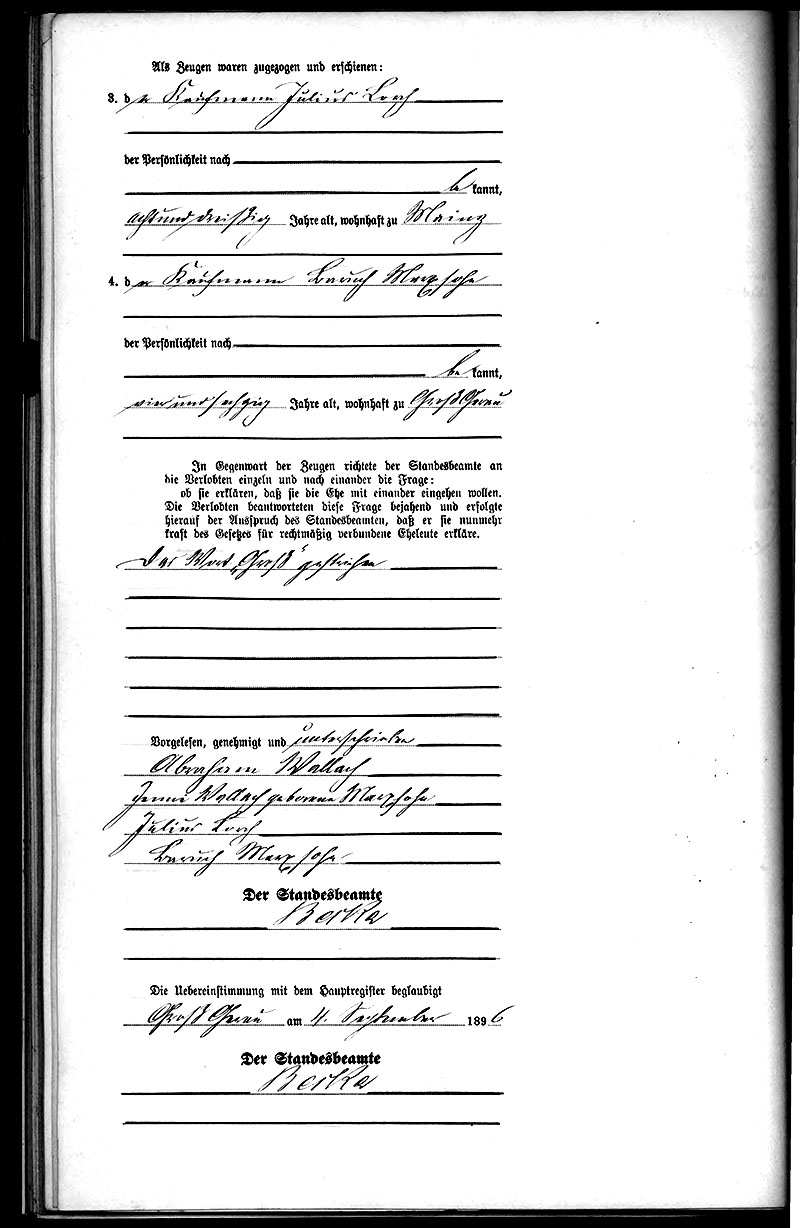 Als Zeugen waren zugezogen und erschienen:
3. der Kaufmann Julius Lorch
der Persönlichkeit nach
bekannt,
achtunddreißig Jahre alt, wohnhaft zu Mainz
4. der Kaufmann Baruch Marxsohn
der Persönlichkeit nach
bekannt,
vierundsechzig Jahre alt, wohnhaft zu Groß Gerau
In Gegenwart der Zeugen richtete der Standesbeamte an
die Verlobten einzeln und nach einander die Frage:
ob sie erklären, daß sie die Ehe mit einander eingehen wollen.
Die Verlobten beantworteten diese Frage bejahend und erfolgte
hierauf der Ausspruch des Standesbeamten, daß er sie nunmehr
kraft des Gesetzes für rechtmäßig verbundene Eheleute erkläre.
Das Wort „Groß“ gestrichen
Vorgelesen, genehmigt und unterschrieben
Abraham Wallach
Wallach geborene Marxsohn
Julius Lorch
Baruch Marxsohn
Der Standesbeamte
Die Uebereinstimmung mit dem Hauptregister beglaubigt
Groß Gerau am 4. September 1896
Der Standesbeamte